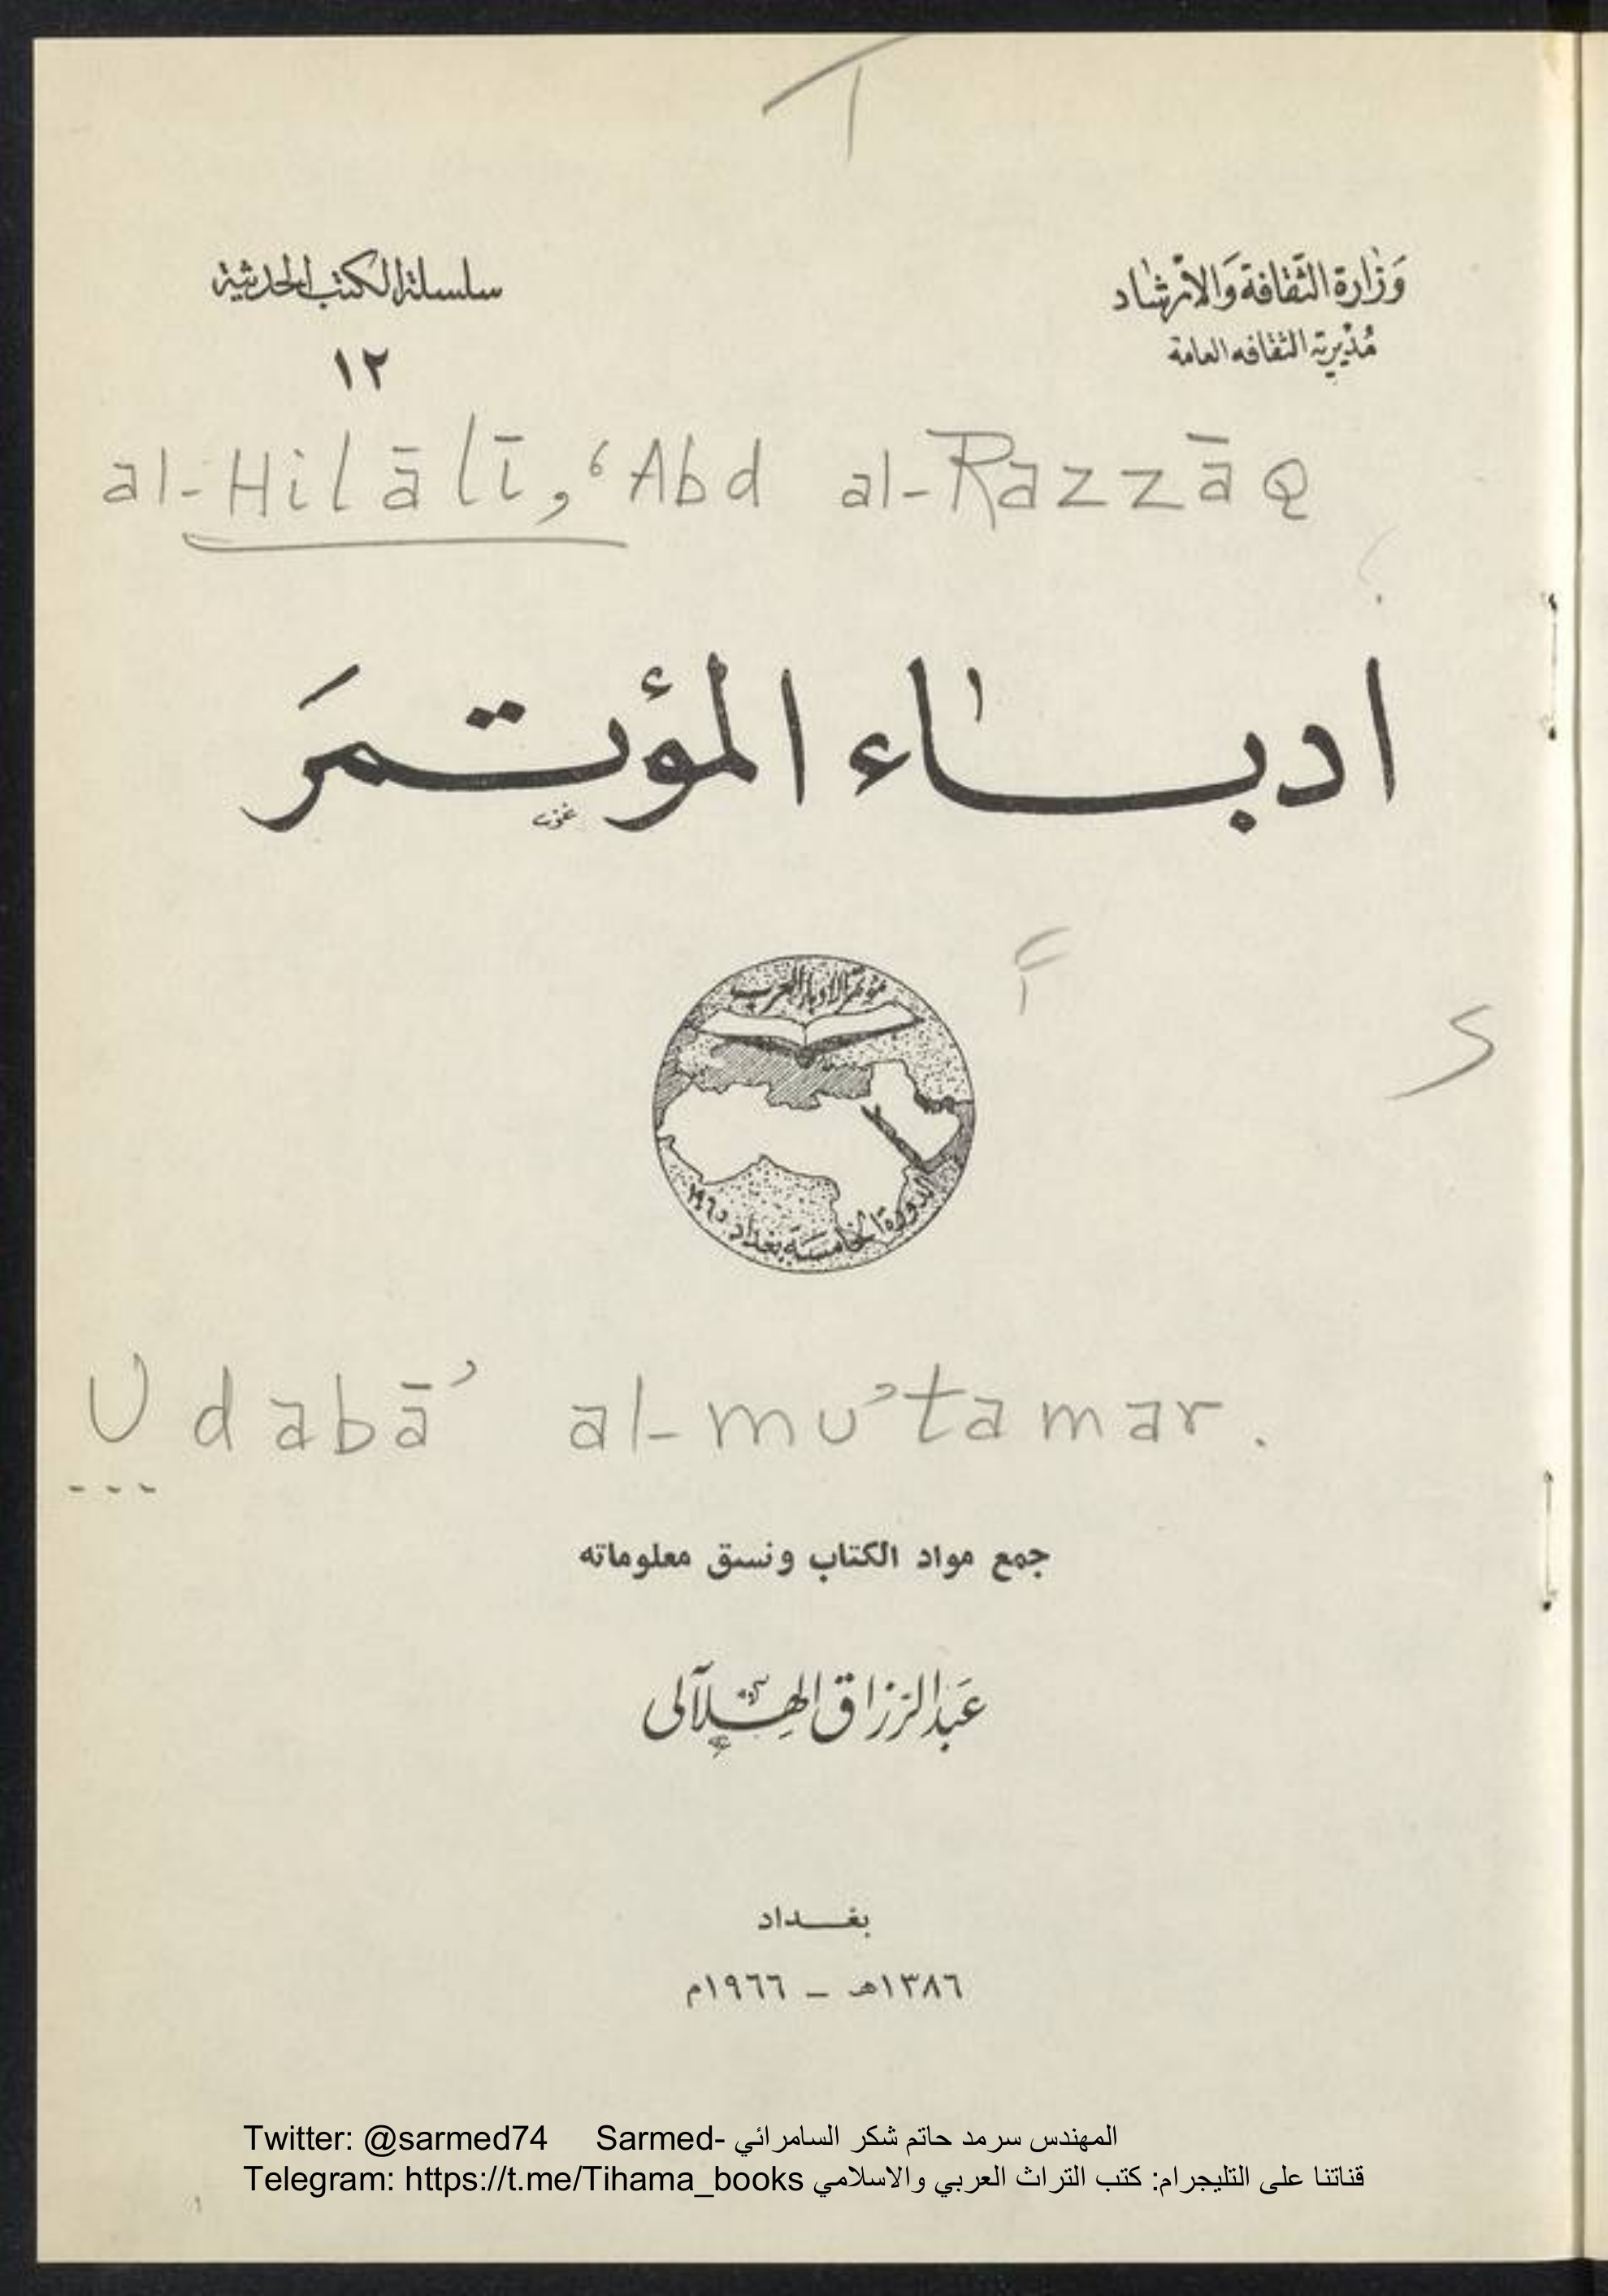 وَزَارَة الثّقَافَة وَالارْشَاد
مُدِيرية الثقافه العامة
سلسلة الكتب الحديثة
١٢
al-Hilālī, ‘Abd al-Razzāq
ادباء المؤتمَر
مؤتمر الادباء العرب
الدورة الخامسة بغداد ١٩٦٥
Udabā’ al-mu’tamar.
جمع مواد الكتاب ونسق معلوماته
عَبد الرَزاق الهِلآلى
بغـــداد
١٣٨٦هـ – ١٩٦٦م
Twitter: @sarmed74 Sarmed- المهندس سرمد حاتم شكر السامرائي
Telegram: https://t.me/Tihama_books قناتنا على التليجرام: كتب التراث العربي والاسلامي